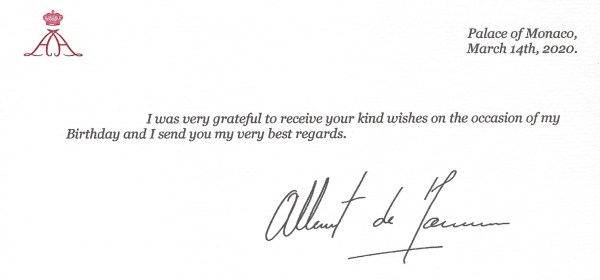 Palace of Monaco,
March 14th, 2020.
I was very grateful to receive your kind wishes on the occasion of my
Birthday and I send you my very best regards.
Albert de Monaco